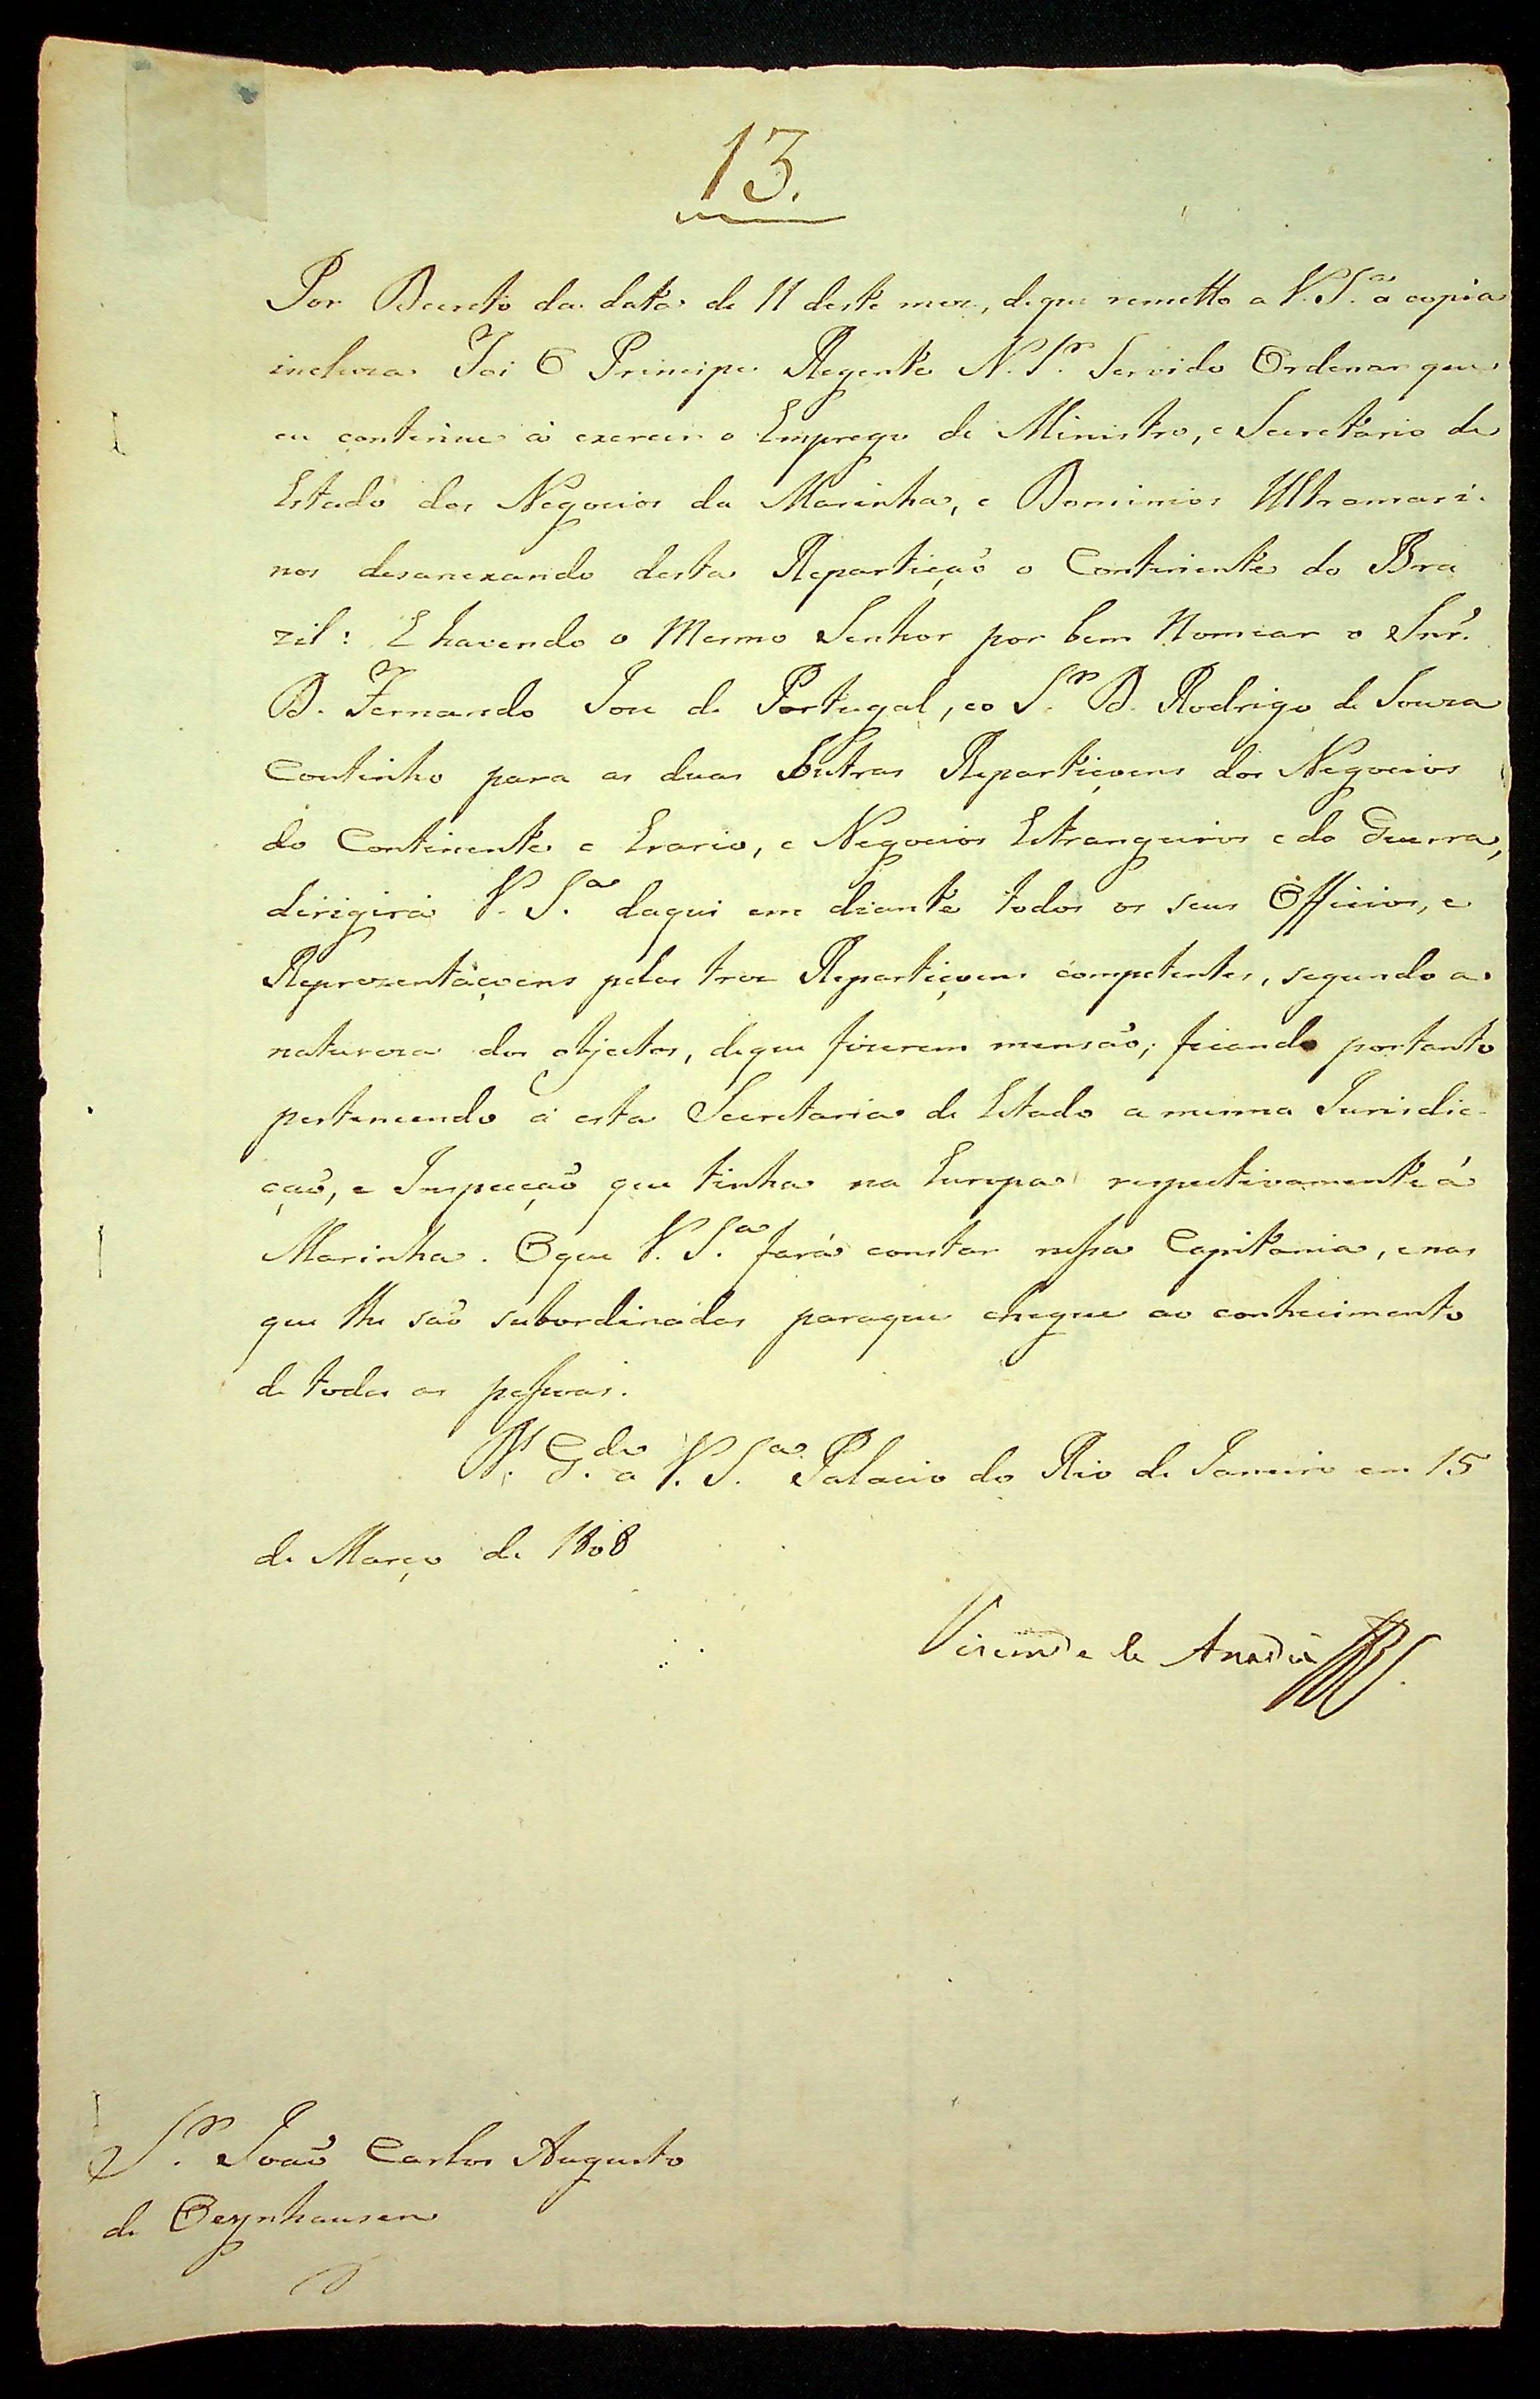 13.
Por Decreto da data de 11 deste mez, de que remetto a V. S.ª a copia
incluza Foi O Principe Regente N. S.r Servido Ordenar que
eu continue á exercer o Emprego de Ministro, e Secretario de
Estado dos Negocios da Marinha, e Dominios Ultramari-
nos desanexando desta Repartição o Continente do Bra
zil: E havendo o Mesmo Senhor por bem Nomear o Snr.
D. Fernando Joze de Portugal, e o S.r D. Rodrigo de Souza
Coutinho para as duas Outras Repartiçoens dos Negocios
do Continente e Erario, e Negocios Estrangeiros e da Guerra,
dirigirá V. S.ª daqui em diante todos os seus Officios, e
Reprezentaçoens pelas trez Repartiçoens competentes, segundo a
natureza dos objectos, de que fizerem mensão; ficando portanto
pertencendo á esta Secretaria de Estado a mesma Jurisdic-
ção, e Inspecção que tinha na Europa respectivamente á
Marinha. O que V. S.ª fará constar nessa Capitania, e nas
que lhe são subordinadas para que chegue ao conhecimento
de todas as pessoas.
D.s G.de a V. S.ª Palacio do Rio de Janeiro em 15
de Março de 1808
Visconde de Anadia
S.r João Carlos Augusto
de Oeynhausen